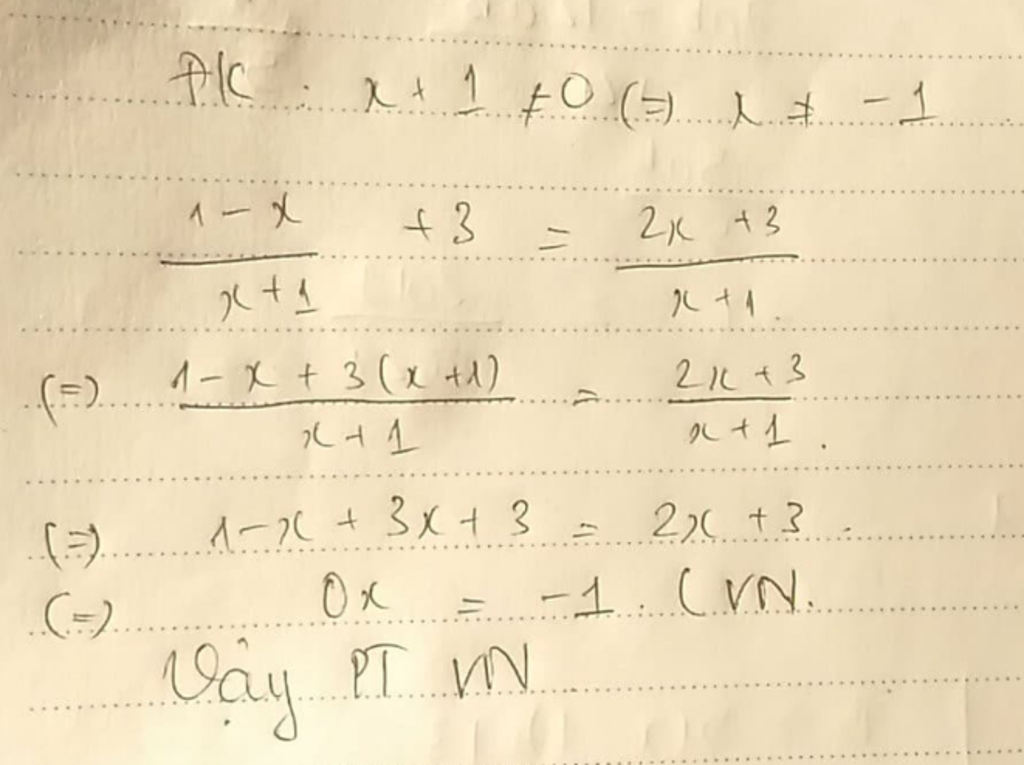 ĐK : x + 1 ≠ 0 (=) x ≠ -1
(1-x)/(x+1) + 3 = (2x+3)/(x+1).
(=) (1-x+3(x+1))/(x+1) = (2x+3)/(x+1).
(=) 1-x + 3x + 3 = 2x + 3.
(=) 0x = -1. (VN.
Vậy PT VN